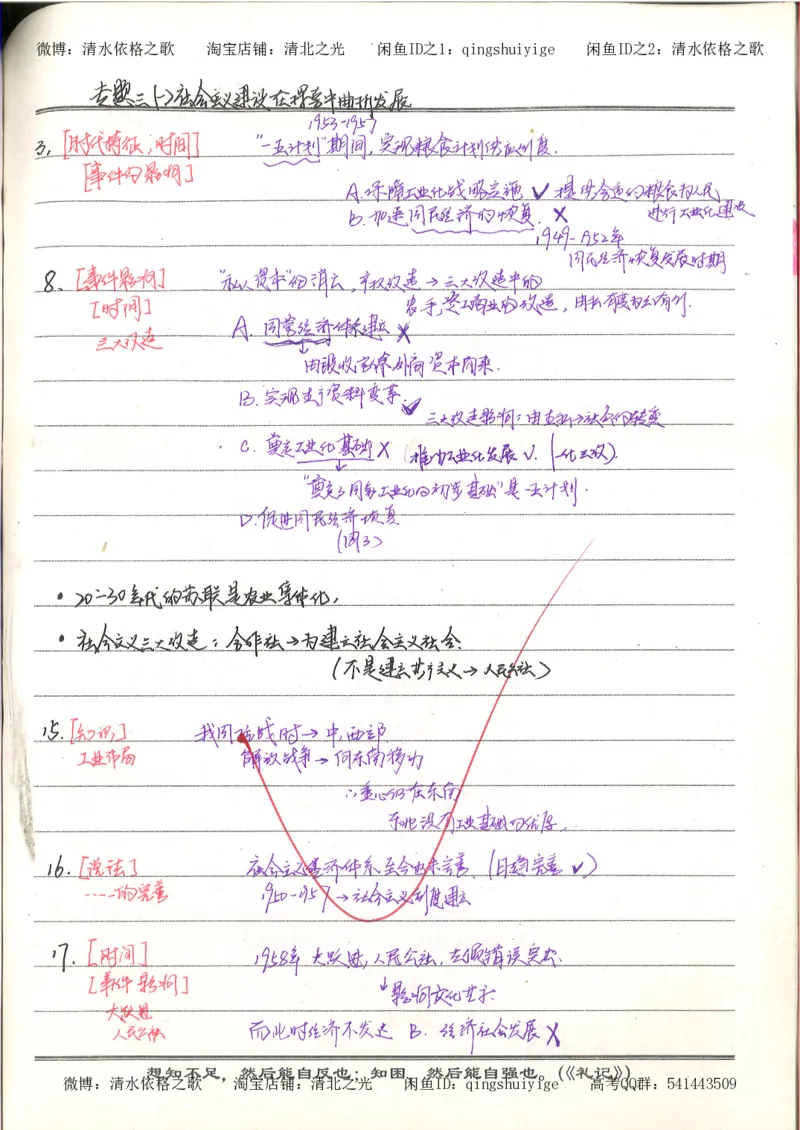 微博：清水依格之歌 淘宝店铺：清北之光 闲鱼ID之1：qingshuiyige 闲鱼ID之2：清水依格之歌
专题三(一)社会主义建设在探索中曲折发展
1953-1957
3. [时代特征；时间] "一五计划"期间，实现粮食计划供应制度.
[事件的影响]
A.保障工业化战略实施 ✓ 提供合适的粮食为人民
进行工业化建设
B.加速国民经济的恢复. ✗
1949-1952年
国民经济恢复发展时期
8. [事件影响] "私人资本"的消亡，产权改造→三大改造中的
[时间] 农、手、资工商业的改造，由私有变为公有制.
三大改造
A. 国营经济体系建立 ✗
由没收官僚外商资本而来.
B.实现生产资料变革. ✓
三大改造影响：由专新→社会的转变
C. 奠定工业化基础 ✗ (推动工业化发展 √. (一化三改).
"奠定了国家工业化的初步基础"是一五计划.
D.促进国民经济恢复
(同3)
• 20-30年代的苏联是农业集体化，
• 社会主义三大改造：合作社→为建立社会主义社会.
(不是建立共产主义→人民公社)
15.[知识] 我国抗战时→中，西部
工业布局 解放战争→向东南移动
∴重心仍在东南
东北没有工业基础的优厚.
16.[说法] 社会主义经济体系至今也未完善. (日趋完善 ✓)
……的完善 1950-1957→社会主义制度建立
17.[时间] 1958年 大跃进，人民公社，左倾错误突出.
[事件影响] ↓影响文化艺术
大跃进
人民公社 而此时经济不发达 B. 经济社会发展 ✗
想知不足，然后能自反也；知困，然后能自强也。(《礼记》)
微博：清水依格之歌 淘宝店铺：清北之光 闲鱼ID：qingshuiyige 高考QQ群：541443509